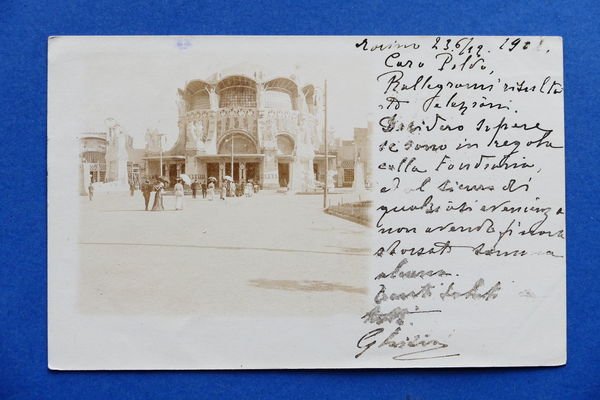 Torino 23 6/12 1902.
Caro Poldo,
Rallegromi risulta
to elezioni.
Desidero sapere
se sono in regola
colla Fondiaria,
ed al sicuro di
qualsiasi evenienza
non avendo finora
sborsato somma
alcuna.
Tanti saluti a
tutti.